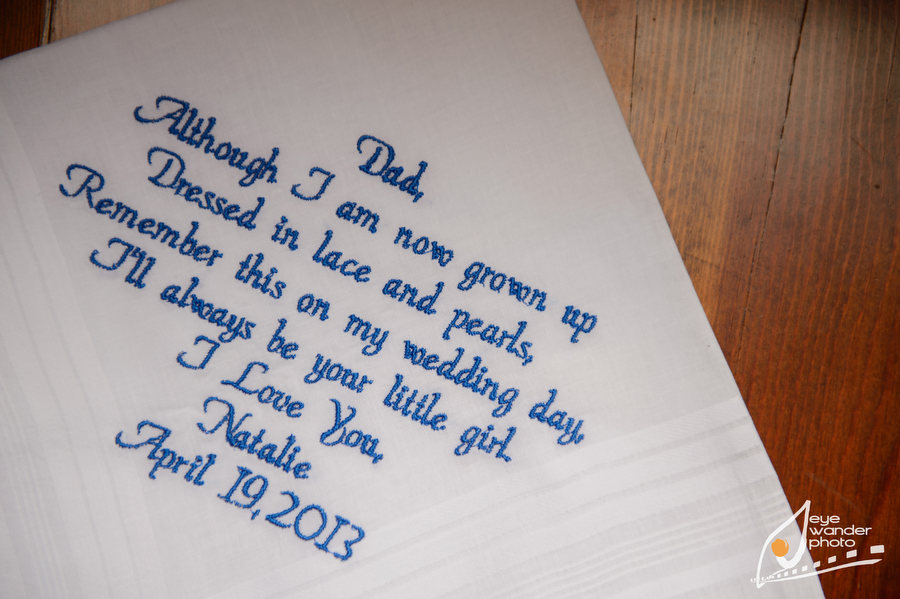 Dad,
Although I am now grown up
Dressed in lace and pearls,
Remember this on my wedding day,
I'll always be your little girl.
I Love You,
Natalie
April 19, 2013
eye
wander
photo